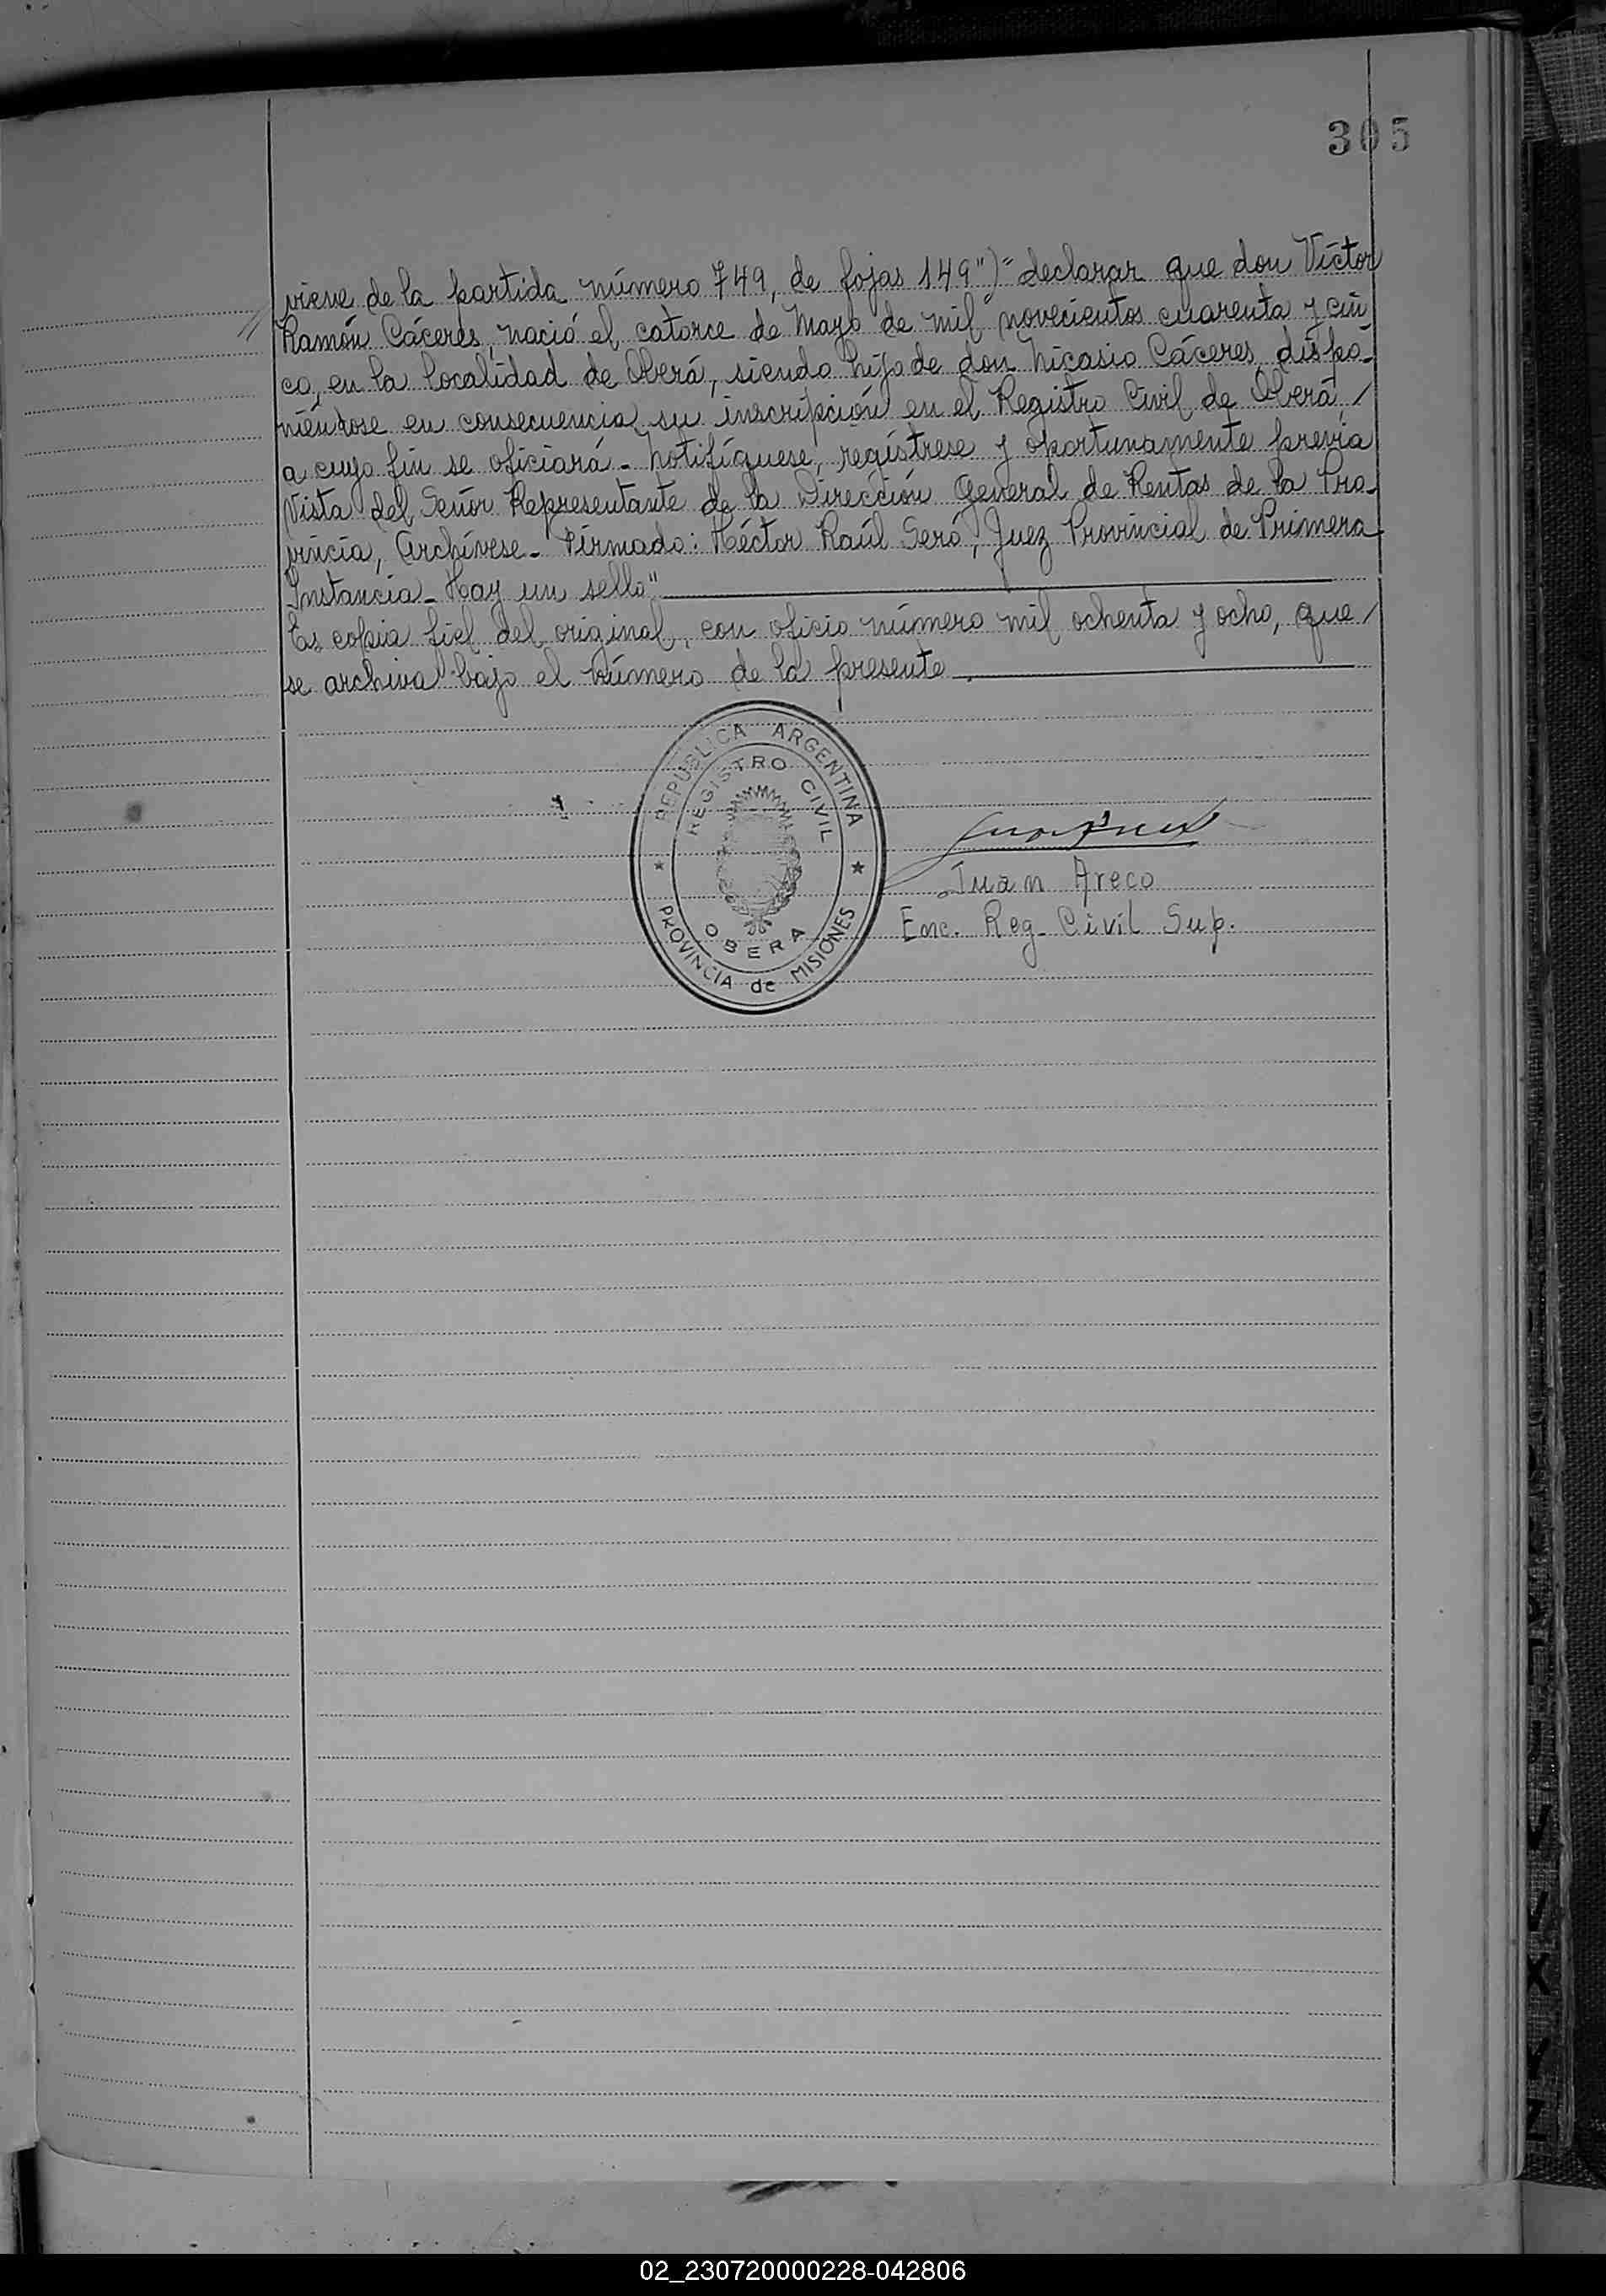 305
viene de la partida número 749, de fojas 149") = declarar que don Víctor
// Ramón Cáceres, nació el catorce de Mayo de mil novecientos cuarenta y cin
co, en la localidad de Oberá, siendo hijo de don Nicasio Cáceres, dispo-
niéndose en consecuencia su inscripción en el Registro Civil de Oberá, /
a cuyo fin se oficiará - Notifíquese, regístrese y oportunamente previa
Vista del Señor Representante de la Dirección General de Rentas de la Pro-
vincia, Archívese - Firmado: Héctor Raúl Seró, Juez Provincial de Primera
Instancia - Hay un sello"
Es copia fiel del original, con oficio número mil ochenta y ocho, que /
se archiva bajo el número de la presente.
REPUBLICA ARGENTINA
REGISTRO CIVIL
OBERA
PROVINCIA de MISIONES
Juan Areco
Enc. Reg. Civil Sup.
02_230720000228-042806